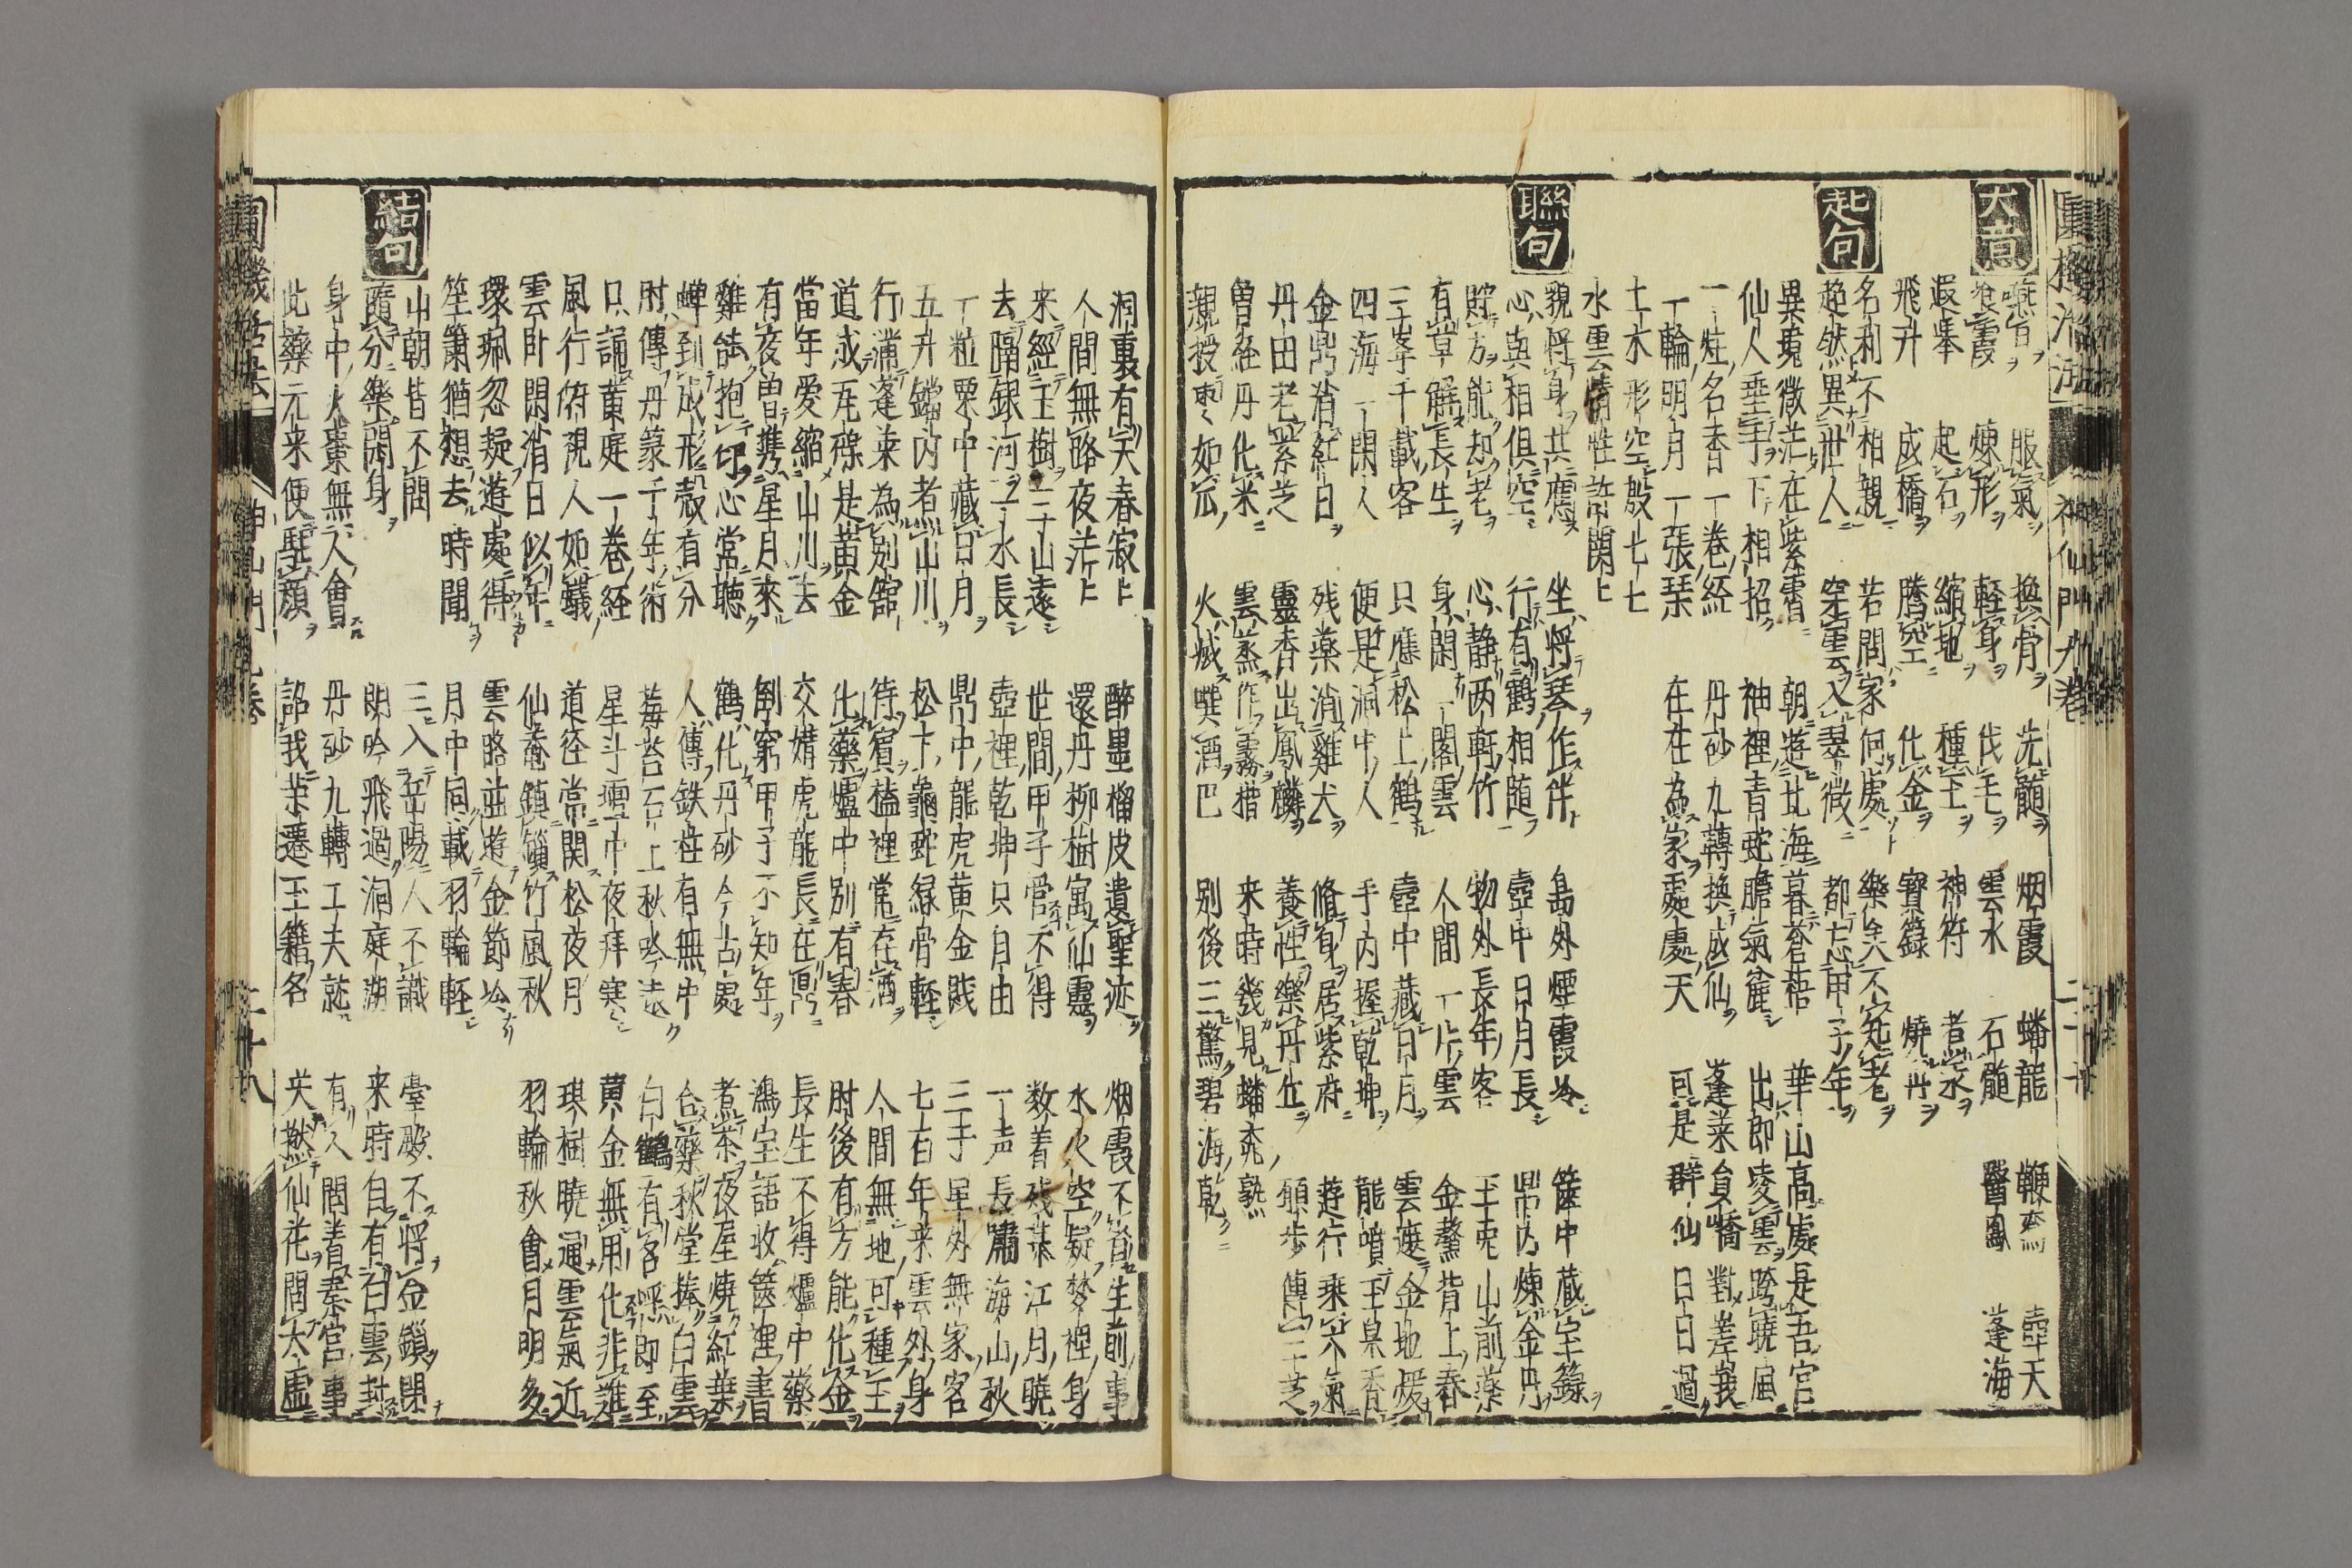 大意
嚥旨 服氣 換骨 洗髓 烟霞 蟠龍 鞭鸞 壺天
飡霞 煉形 輕身 伐毛 雲水 石髓 驂鳳 蓬海
遐舉 起石 縮地 種玉 神符 煮汞
飛升 成橋 騰空 化金 寶籙 燒丹
起句
名利不相親 若問家何處 樂矣不知老
超然異世人 穿雲入翠微 都忘甲子年
異蒐微茫在紫霄 朝遊北海暮蒼梧 華山高處是吾宮
仙人垂手下相招 袖裡青蛇膽氣麄 出即凌雲跨曉風
一炷名香一卷經 丹砂九轉換成仙 蓬萊負嶠對差峩
一輪明月一張琹 在在為家處處天 可是群仙日日過
土木形空殷七七
水雲情性許閑上
聯句
貌將身共應 坐將琴作伴 島外煙霞冷 篋中藏宝籙
心與相俱空 行有鶴相随 壺中日月長 鼎内煉金丹
貯方能却老 心静两軒竹 物外長年客 玉兎山前藥
有草解長生 身閑一閣雲 人間一片雲 金鰲背上春
三峯千載客 只應松上鶴 壺中藏日月 雲遮金地煖
四海一閑人 便是洞中人 手内握乾坤 能噴玉杲香
金鼎消紅日 残藥消雞犬 脩身居紫府 遊行乘六氣
丹田老紫芝 靈香出鳳麟 養性樂丹丘 願步傳三芝
曽経丹化米 雲蒸作霧楷 来時幾見蟠桃熟
親授枣如瓜 火滅噀酒巴 别後三驚碧海乾
洞裏有天春寂上 醉墨榴皮遺聖迹 烟霞不省生前事
人間無路夜茫上 還丹柳樹寓仙靈 水火空疑梦裡身
来經玉樹三山遠 世間甲子管不得 数着残棊江月曉
去隔銀河一水長 壺裡乾坤只自由 一声長嘯海山秋
一粒粟中藏日月 鼎中龍虎黄金賎 三千星外無家客
五升鐺内煮山川 松下龜蛇緑骨輕 七百年来雲外身
行滿蓬莱為别舘 待賓榼裡常在酒 人間無地可種玉
道成瓦礫是黄金 化藥爐中别有春 肘後有方能化金
當年愛縮山川去 交媾虎龍長在鼎 長生不得爐中藥
有夜曽携星月來 倒窮甲子不知年 鴻宝語收篋裡書
雞能抱卵心常聽 鶴化丹砂今古處 煮茶夜屋燒紅葉
蟬到成形殼有分 人傳鉄母有無中 合藥秋堂捧白雲
肘傳丹篆千年術 莓苔石上秋吟遠 白鶴有名呼即至
口誦黄庭一卷経 星斗壇中夜拜寒 黄金無用化非難
風行俯視人如蟻 道径常関松夜月 琪樹曉通雲氣近
雲卧閑消日似年 仙菴鎖鎖竹風秋 羽輪秋會月明多
環珮忽疑遊處得 雲略並遊金節冷
笙簫猶想去時聞 月中同載羽輪輕
山朝皆不問 三入岳陽人不識 臺殿不將金鎖閉
結句
隨分樂閑身 朗吟飛過洞庭湖 来時自有白雲封
身中火棗無人會 丹砂九轉工夫就 有人問着秦宮事
此藥元来便駐顏 詔我芝遷玉籍名 笑撚仙花問太虚